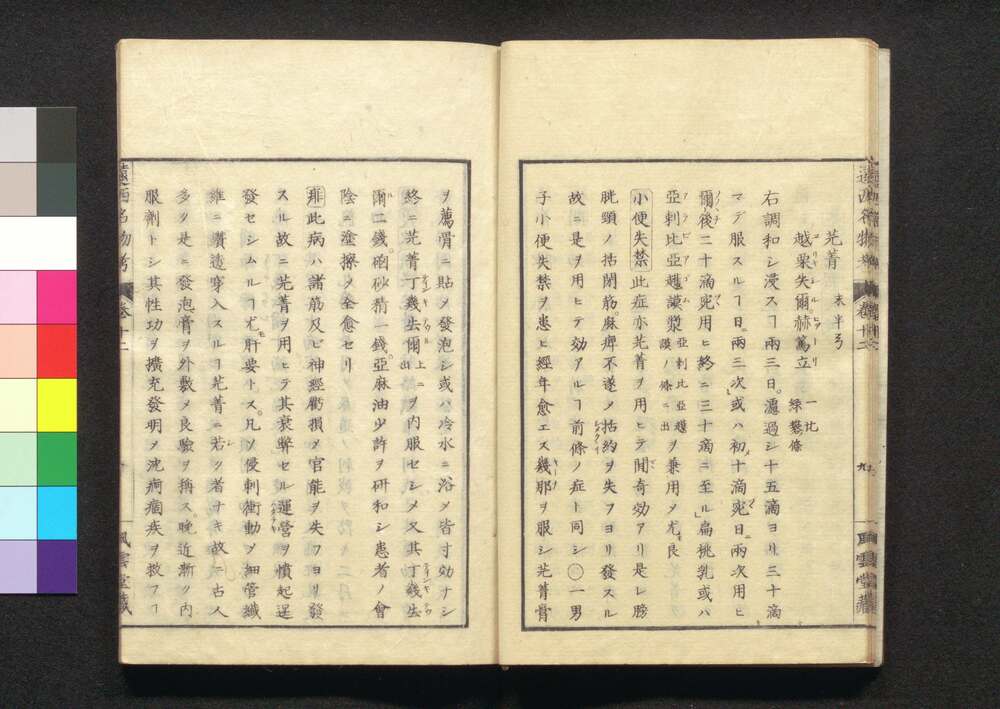 芫菁 末半弓
越栗失爾赫篤立 一比 綠礬條
コリキシルヒツーリ
右調和シ浸スヿ兩三日。濾過シ十五滴ヨリ三十滴
マデ服スルヿ日ニ兩三次或ハ初メ十滴宛日ニ兩次用ヒ
爾後二十滴宛用ヒ終ニ三十滴ニ至ル」扁桃乳或ハ
亞剌比亞護謨漿 亞剌比亞護謨ノ條ニ出 ヲ兼用メ尤良
アラビアゴム
小便失禁 此症亦芫菁ヲ用ヒテ間奇効アリ是レ膀
胱頸ノ括閉筋。麻痺不遂メ括約ヲ失フヨリ發スル
故ニ是ヲ用ヒテ効アルヿ前條ノ症ト同シ○一男
子小便失禁ヲ患ヒ經年愈エス幾那ヲ服シ芫菁膏
遠西名物考 卷十二
風雲堂藏
ヲ薦骨ニ貼メ發泡シ或ハ冷水ニ浴メ皆寸効ナシ
終ニ芫菁丁幾生爾 上ニ出 ヲ内服セシメ又其丁幾生
爾二錢硇砂精一錢。亞麻油少許ヲ研和シ患者ノ會
陰ニ塗擦メ全愈セリ
琲此病ハ諸筋及ビ神經虧損メ官能ヲ失フヨリ發
スル故ニ芫菁ヲ用ヒテ其衰弊セル運營ヲ憤起逞
發セシムルヿ尤モ肝要トス。凡ソ侵刺衝動メ細管纖
維ニ鑽透穿入スルヿ芫菁ニ若ク者ナキ故ニ古人
多ク是ニ發泡膏ヲ外敷メ良驗ヲ稱ス晩近漸ク内
服劑トシ其性功ヲ擴充發明メ沈痾痼疾ヲ救フヿ
遠西名物考 卷十二
風雲堂藏